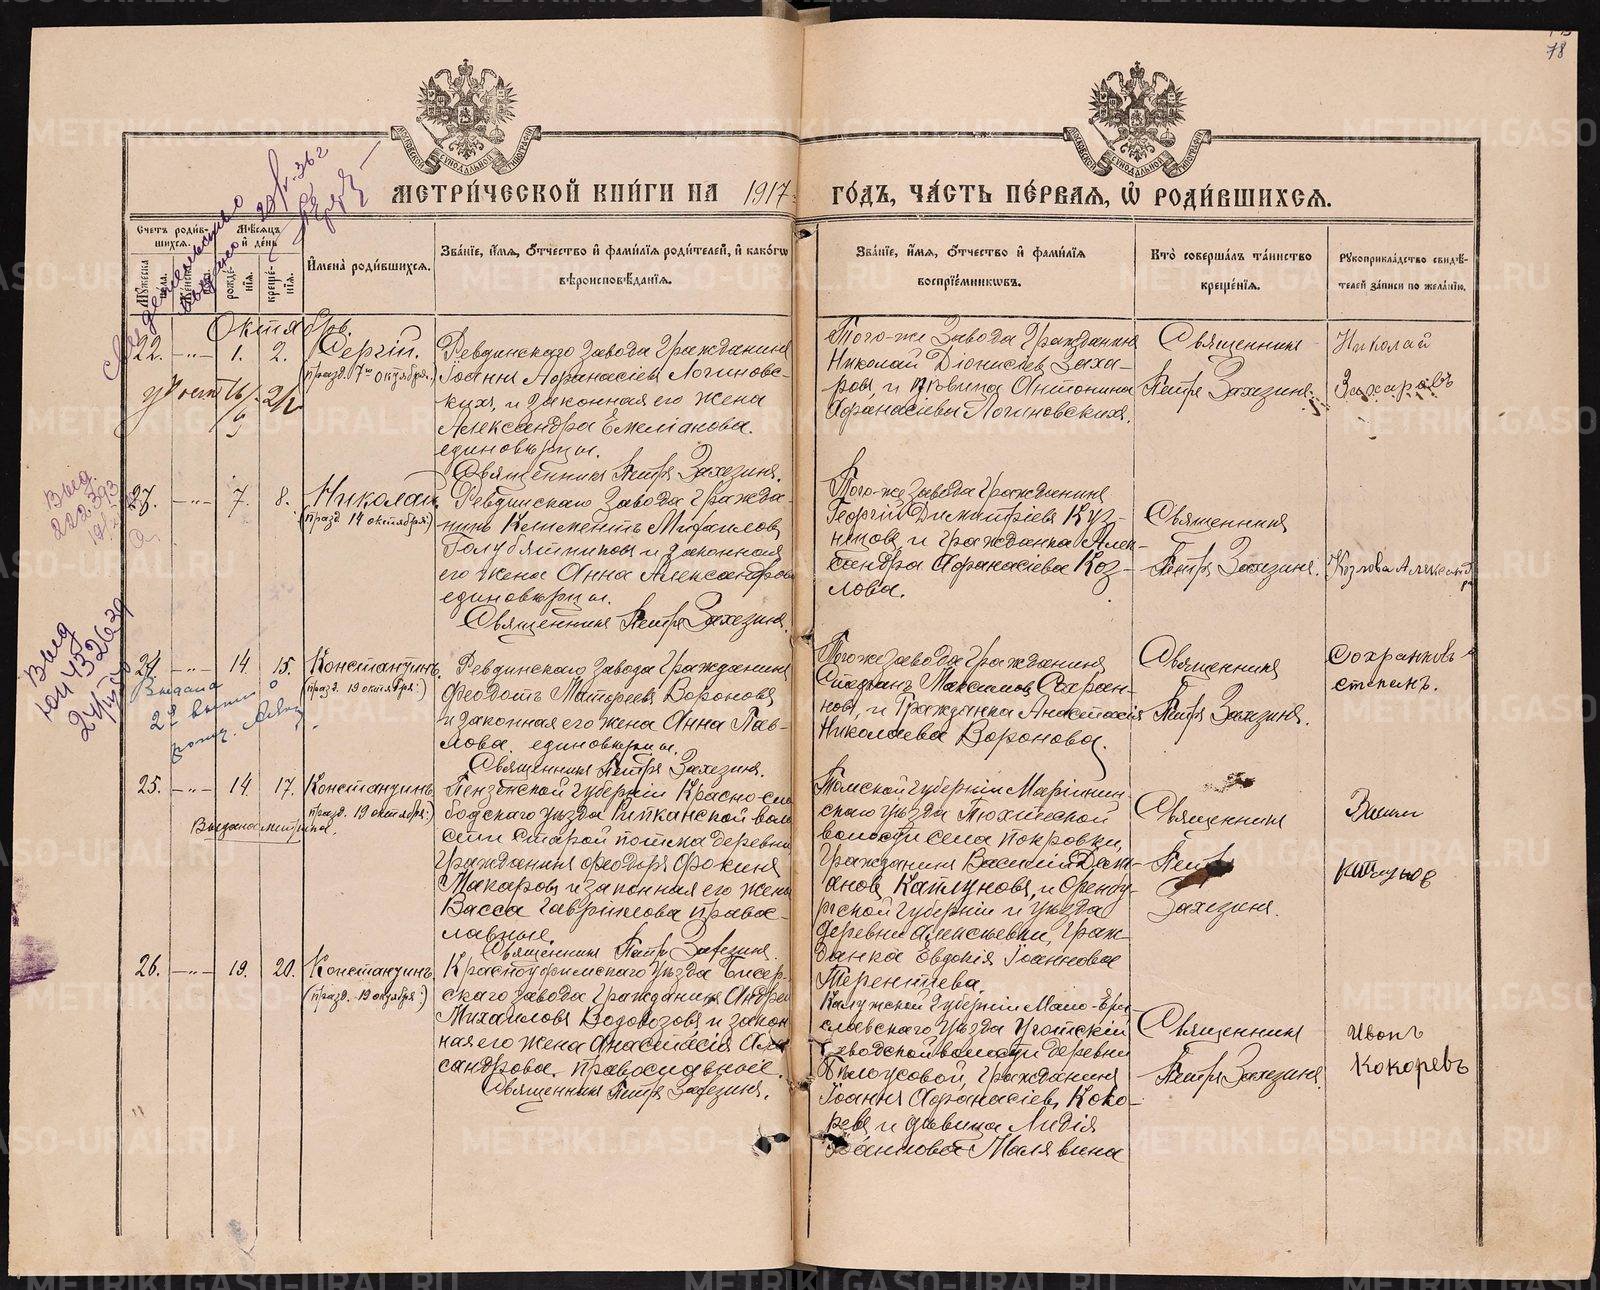 78
МЕТРИ́ЧЕСКОЙ КНИ́ГИ НА 1917
ГО́ДЪ, ЧА́СТЬ ПЕ́РВАЯ, Ѿ РОДИ́ВШИХСЯ.
Счетъ родив-
шихся.
Мѣсяцъ
и день
Мужеска
пола.
Женска
рожде-
нія.
креще-
нія.
Имена родившихся.
Званіе, имя, отчество и фамилія родителей, и какогѡ
вѣроисповѣданія.
Званіе, имя, отчество и фамилія
воспріемниковъ.
Кто совершалъ таинство
крещенія.
Рукоприкладство свидѣ-
телей записи по желанію.
свидетельство
выдано
Октябрь.
22. -"- 1. 2.
Сергій.
(празд. 7го октября.)
Ревдинскаго завода гражданинъ
Іоаннъ Аѳанасіевъ Логиновс-
кихъ, и законная его жена
Александра Емеліанова.
единовѣрцы.
Священникъ Петръ Захезинъ.
Того-же Завода Гражданинъ
Николай Діонисіевъ Заха-
ровъ, и дѣвица Антонина
Аѳанасіева Логиновскихъ.
Священникъ
Петръ Захезинъ.
Николай
Захаровъ
Выд
-"- 7. 8.
Николай.
(празд. 14 октября.)
Ревдинскаго Завода Гражда-
нинъ Климентъ Михаиловъ
Голубятниковъ и законная
его жена Анна Александрова
единовѣрцы.
Священникъ Петръ Захезинъ.
Того-же завода Гражданинъ
Георгій Димитріевъ Куз-
нцовъ и гражданка Алек-
сандра Аѳанасіева Коз-
лова.
Священникъ
Петръ Захезинъ.
Козлова Александ
ра
Выд
24 -"- 14 15.
Выдана
Константинъ.
(празд. 19 октября.)
Ревдинскаго завода Гражданинъ
Ѳеодотъ Матѳеевъ Вороновъ
и законная его жена Анна Пав-
лова. единовѣрцы.
Священникъ Петръ Захезинъ.
Тогоже завода Гражданинъ
Стефанъ Максимовъ Сохран-
новъ, и Гражданка Анастасія
Николаева Воронова.
Священникъ
Петръ Захезинъ.
Сохранковъ
степанъ.
25. -"- 14. 17.
Выдана метрика.
Константинъ
(празд. 19 октября.)
Пензенской губерніи Красно-сло
бодскаго уѣзда Рыпканской воло
сти Старой потьма деревни
гражданинъ Ѳеодоръ Ѳокинъ
Макаровъ и законная его жена
Васса Гавріилова правос-
лавные.
Священникъ Петръ Захезинъ.
Томской губерніи Маріинск-
скаго уѣзда Тюхтетской
волости села Покровки,
Гражданинъ Василій Демь-
яновъ Катлуновъ, и Оренбу-
ргской губерніи и уѣзда
деревни Алексѣевки, граж-
данка Евдокія Іоаннова
Терентіева.
Священникъ
Петръ
Захезинъ.
26. -"- 19. 20.
Константинъ
(празд. 19 октября.)
Красноуфимскаго уѣзда Бисер-
скаго завода Гражданинъ Андрей
Михаиловъ Водовозовъ и закон
ная его жена Анастасія Але
сандрова. Православные.
Священникъ Петръ Захезинъ.
Калужской Губерніи Мало-Яро
славскаго уѣзда Угодскій
заводской волости деревни
Бѣлоусовой, Гражданинъ
Іоаннъ Аѳанасіевъ Коко-
ревъ и дѣвица Лидія
Іоаннова Малявина
Священникъ
Петръ Захезинъ.
Иванъ
Кокоревъ
METRIKI.GASO-URAL.RU